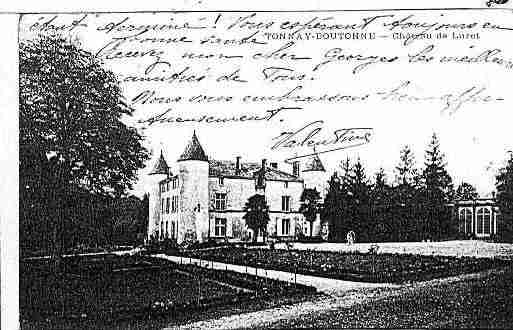 étant terminé ! Vous espérant toujours en
bonne santé
TONNAY-BOUTONNE — Château de Luret
Recevez mon cher Georges les meilleures
amitiés de Tous.
Nous vous embrassons bien affec-
tueusement.
Valentine